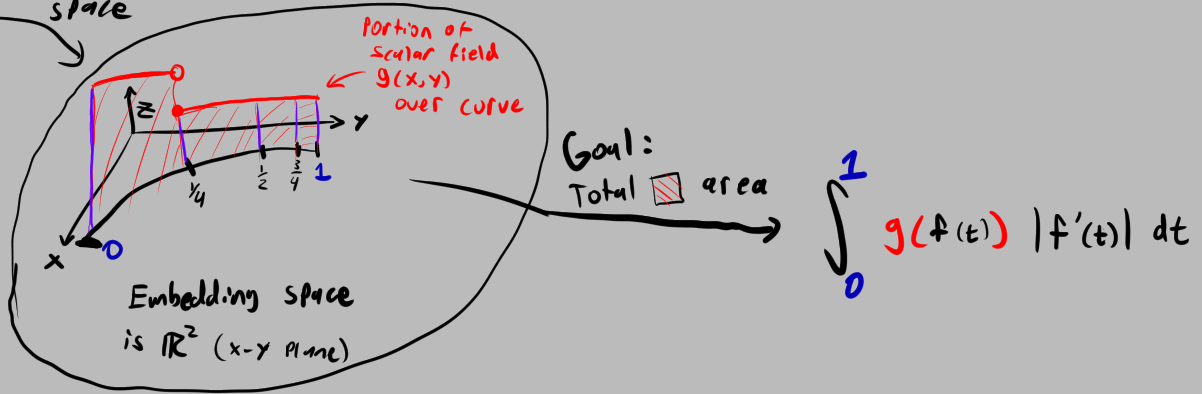 space
Portion of
scalar field
g(x,y)
over curve
z
Y
1/4
1/2
3/4
1
X
0
Embedding space
is ℝ² (x-y plane)
Goal:
Total area
∫₀¹ g(f(t)) |f'(t)| dt